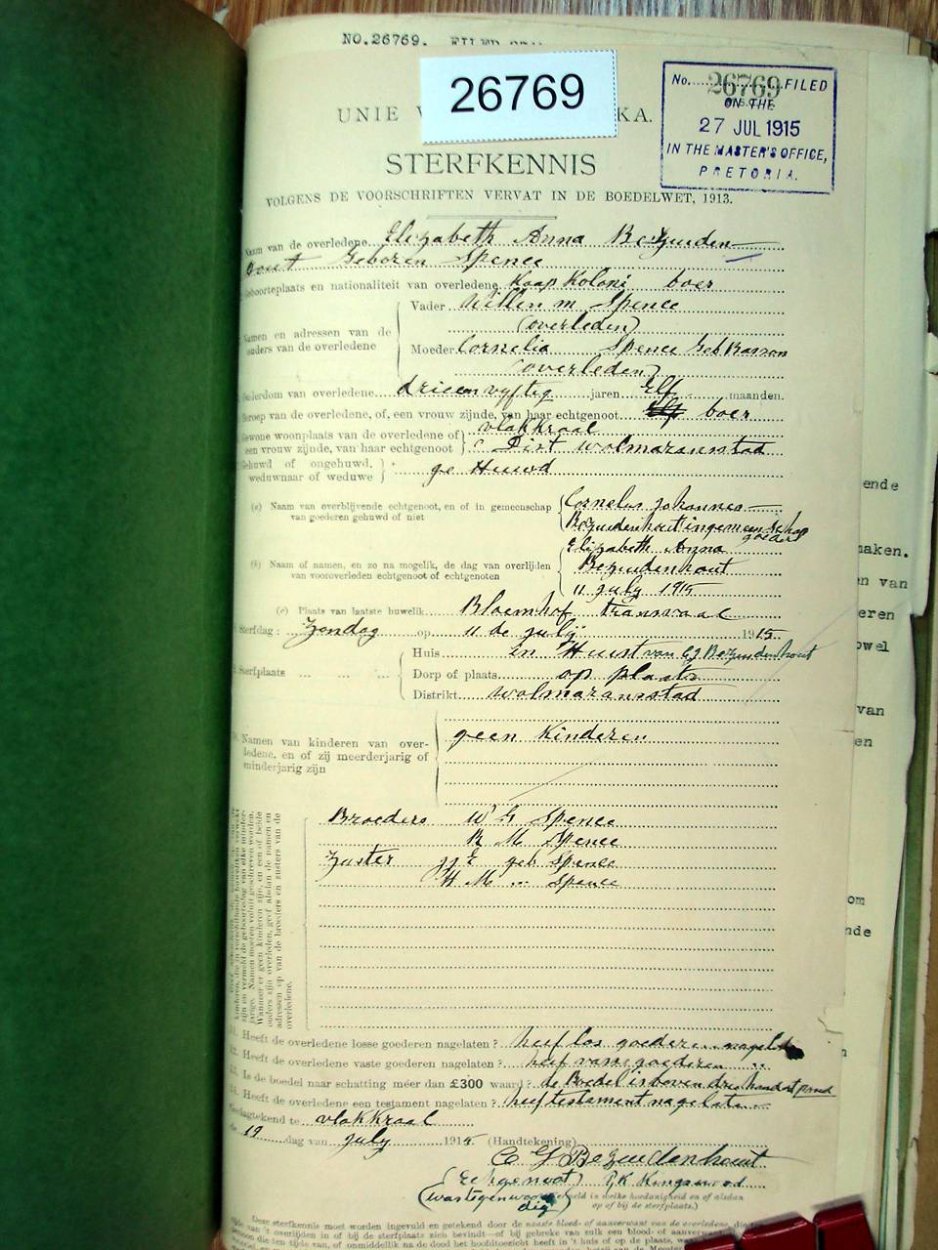 NO.26769. FILED
26769
No. 26769 FILED
ON THE
27 JUL 1915
IN THE MASTER'S OFFICE,
PRETORIA.
UNIE V KA.
STERFKENNIS
VOLGENS DE VOORSCHRIFTEN VERVAT IN DE BOEDELWET, 1913.
Naam van de overledene Elizabeth Anna Bezuiden-
hout Geboren Spence
Geboorteplaats en nationaliteit van overledene Kaap Koloni boer
Namen en adressen van de ouders van de overledene
Vader Willem M Spence
(overleden)
Moeder Cornelia Spence Geb Basson
(overleden)
Ouderdom van overledene drieen vyftig jaren Elf maanden.
Beroep van de overledene, of, een vrouw zijnde, van haar echtgenoot boer
Gewone woonplaats van de overledene of een vrouw zijnde, van haar echtgenoot
vlakkraal
Dist wolmaransstad
Gehuwd of ongehuwd, weduwnaar of weduwe ge Huwd
(a) Naam van overblijvende echtgenoot, en of in gemeenschap van goederen gehuwd of niet
Cornelus Johannes
Bezuidenhout in gemeenschap
goedere
(b) Naam of namen, en zo na mogelik, de dag van overlijden van vooroverleden echtgenoot of echtgenoten
Elizabeth Anna
Bezuidenhout
11 July 1915
(c) Plaats van laatste huwelik Bloemhof Transvaal
Sterfdag: Zondag op 11 de July 1915
Sterfplaats
Huis in Huist van CJ Bezuidenhout
Dorp of plaats op plaats
Distrikt wolmaransstad
Namen van kinderen van overledene, en of zij meerderjarig of minderjarig zijn
geen Kinderen
Wanneer er geen kinderen zijn, en een of beide ouders zijn overleden, geef alsdan de namen en adressen op van de broeders en zusters van de overledene.
Broeders W G Spence
R M Spence
Zuster J J E geb Spence
H M " Spence
11. Heeft de overledene losse goederen nagelaten? heef los goedere nagelate
12. Heeft de overledene vaste goederen nagelaten? heef vaste goederen "
13. Is de boedel naar schatting méér dan £300 waard? de Boedel is boven drie hondert pond
14. Heeft de overledene een testament nagelaten? heef testament nagelate
Gedagtekend te vlakkraal
de 19 dag van July 1915 (Handtekening)
C J Bezuidenhout
(Echgenoot)
(was tegenwoor
dig)
in welke hoedanigheid en of alsdan
op of bij de sterfplaats.)
Deze sterfkennis moet worden ingevuld en getekend door de naaste bloed- of aanverwant van de overledene, die
ende
maken.
en van
eren
owel
van
en
om
nde